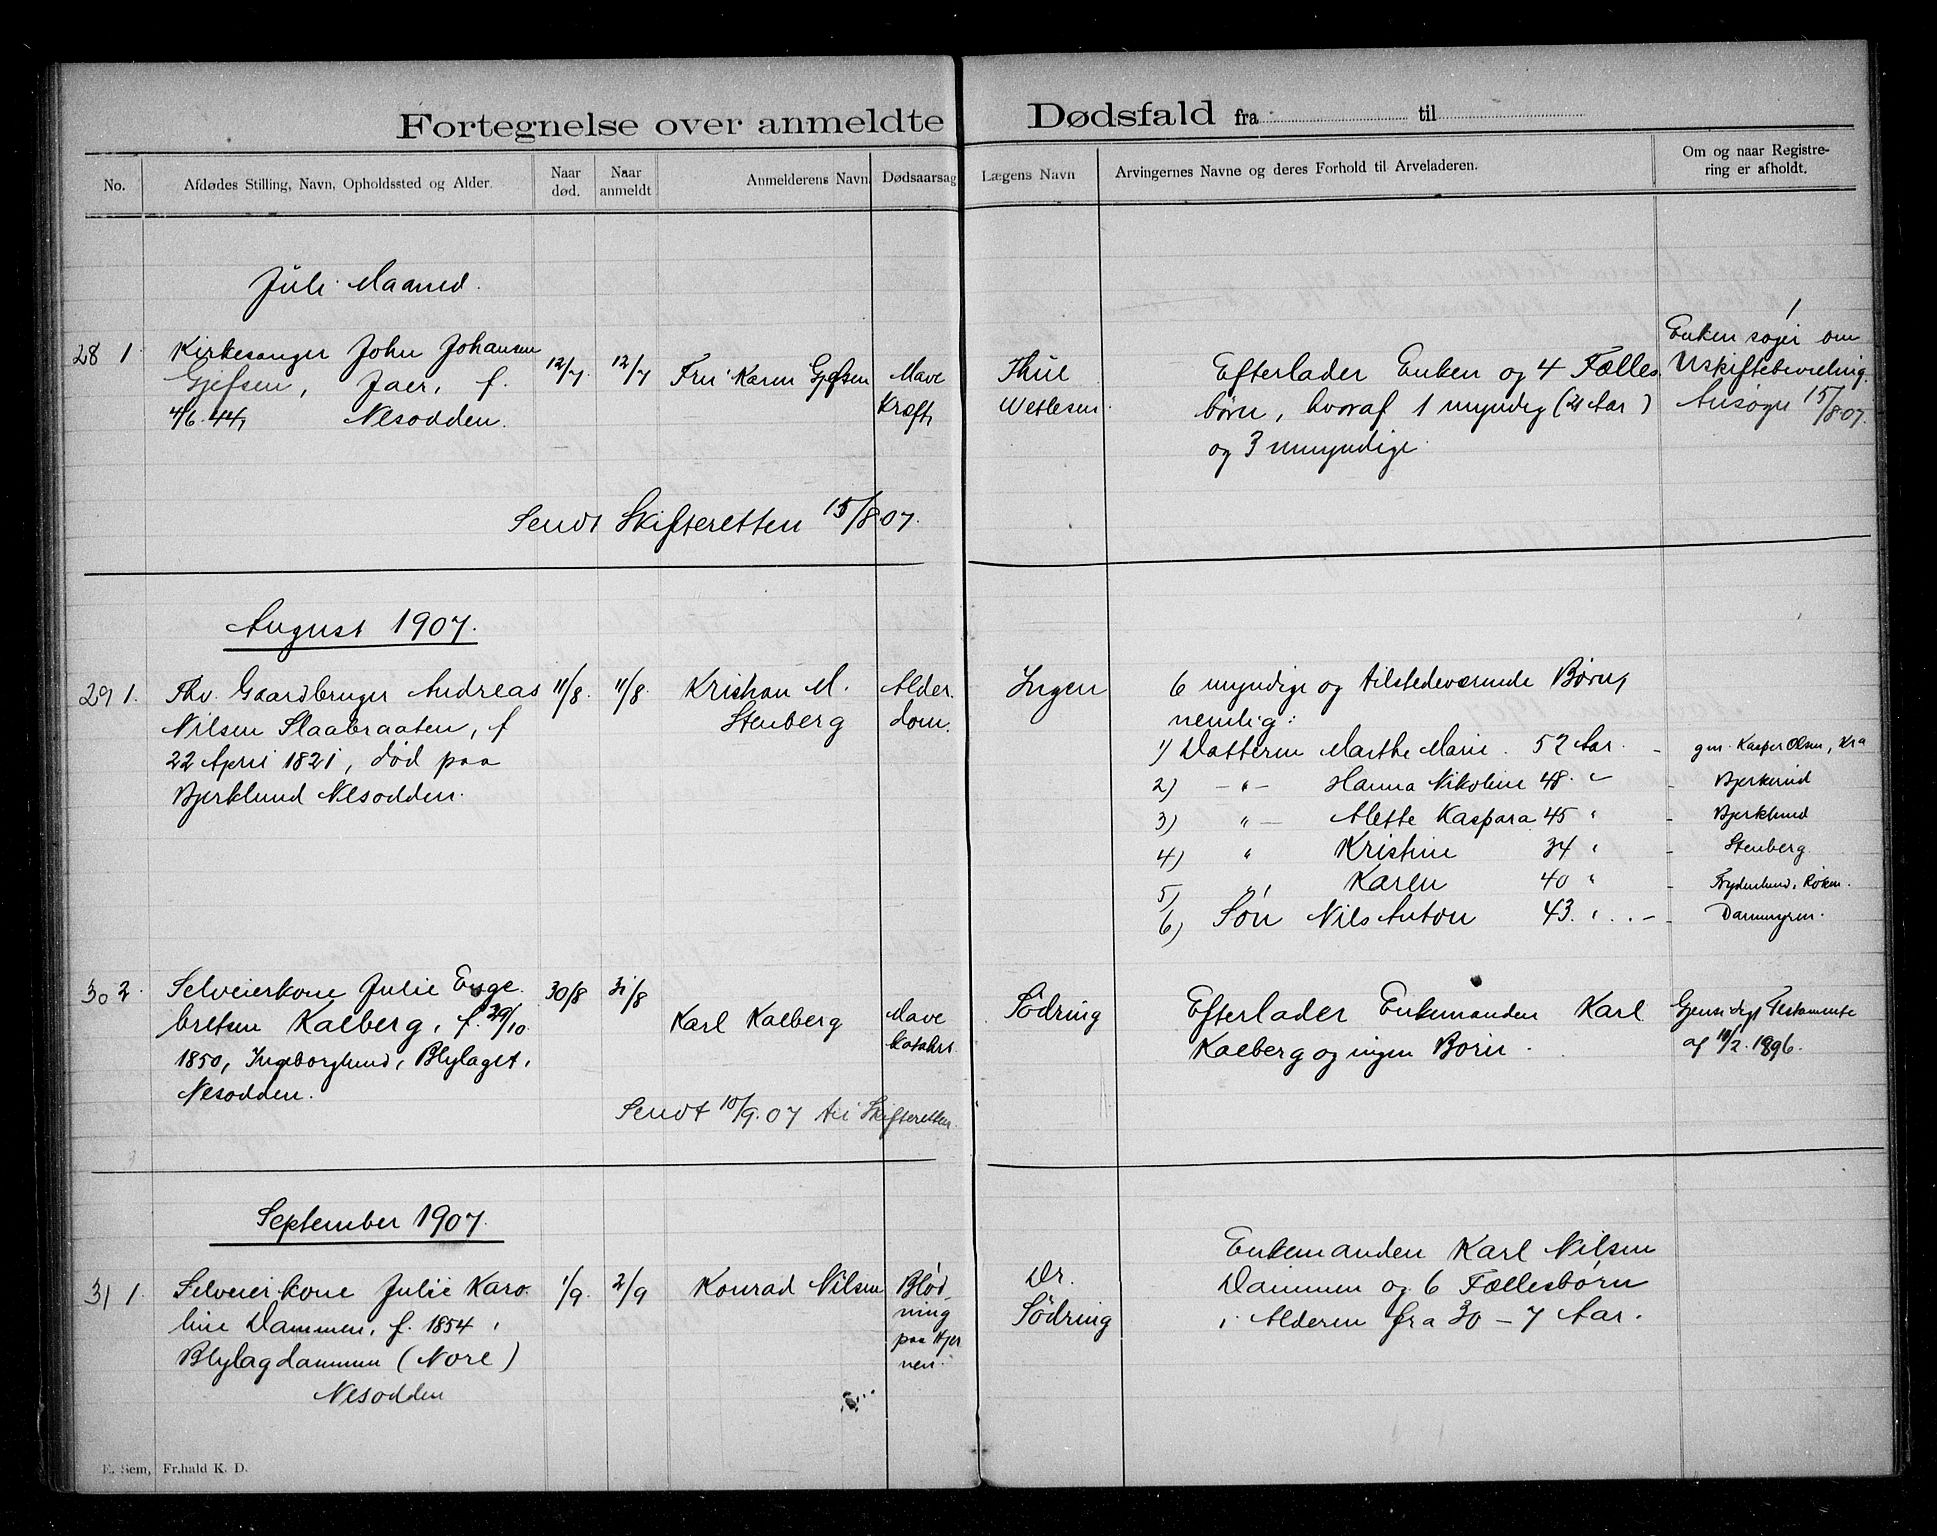 Fortegnelse over anmeldte Dødsfald fra til
No.
Afdødes Stilling, Navn, Opholdssted og Alder.
Naar død.
Naar anmeldt
Anmelderens Navn
Dødsaarsag
Lægens Navn
Arvingernes Navne og deres Forhold til Arveladeren.
Om og naar Registre-
ring er afholdt.
Juli Maaned.
28 1.
Kirkesanger John Johansen
Gjefsen, Jaer, f.
4/6. 44, Nesodden.
12/7.
12/7
Fru Karen Gjefsen
Mave
Kræft,
Thue
Wetlesen.
Efterlader Enken og 4 Fælles
børn, hvoraf 1 myndig (21 Aar)
og 3 umyndige.
Enken søger om
Uskiftebevilling.
Ansøgn 15/8.07.
Sendt Skifteretten 15/8 07.
August 1907.
29 1.
Fhv. Gaardbruger Andreas
Nilsen Slaabraaten, f
22 April 1821, død paa
Bjerklund Nesodden.
11/8.
11/8.
Kristian M.
Stenberg
Alder
dom.
Ingen
6 myndige og tilstedeværende Børn,
nemlig:
1) Datteren Marthe Marie. 52 Aar. - gm. Kasper Olsen, Kra
2) -"- Hanna Nikoline 48. " - Bjerkelund
3) "- Alette Kaspara 45 " - Bjerklund
4) " Kristine 34 " - Stenberg
5) " Karen 40 " - Frydenlund, Røken.
6) Søn Nils Anton 43. " - Dammyren.
30 2.
Selveierkone Julie Enge
bretsen Kalberg, f. 29/10.
1850, Ingeborglund, Blylaget,
Nesodden.
30/8
31/8
Karl Kalberg
Mave
katahrr
Sødring
Efterlader Enkemanden Karl
Kalberg og ingen Børn.
Gjensidigt Testamente
af 10/2. 1896.
Sendt 10/9. 07 til Skifteretten.
September 1907.
31 1.
Selveierkone Julie Karo
line Dammen, f. 1854,
Blylagdammen (Nore)
Nesodden
1/9.
2/9
Konrad Nilsen
Blød
ning
paa Hjer
nen.
Dr.
Sødring
Enkemanden Karl Nilsen
Dammen og 6 Fællesbørn
i Alderen fra 30 - 7 Aar.
E. Sem, Fr.hald K. D.